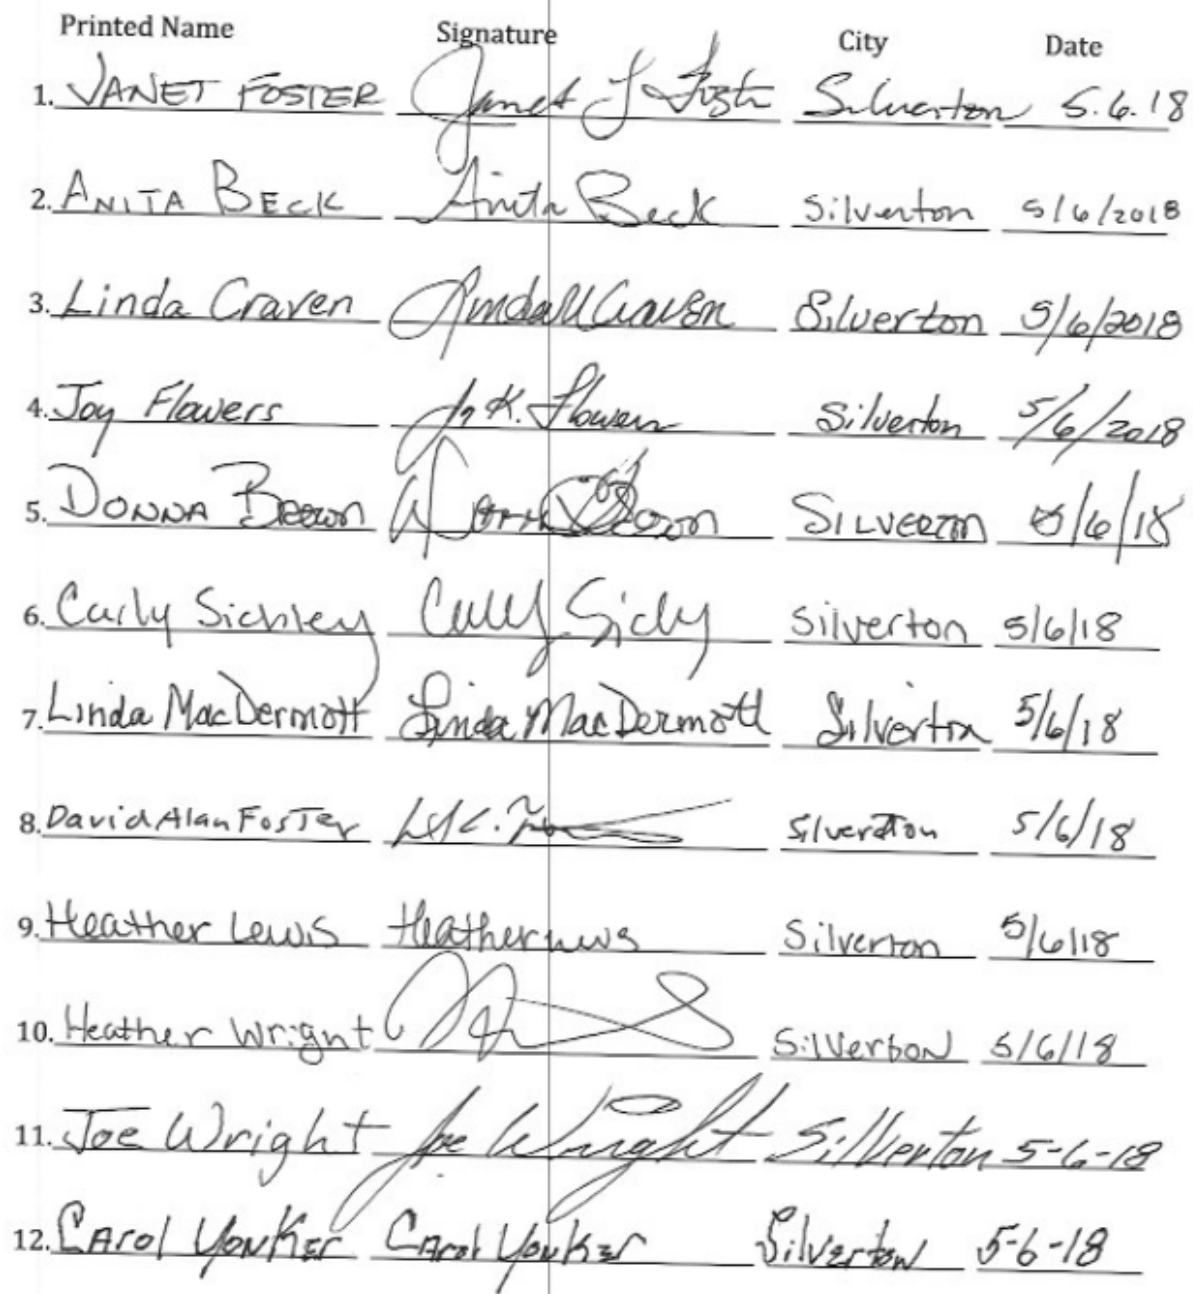 Printed Name Signature City Date
1. JANET FOSTER Janet L Foster Silverton 5.6.18
2. ANITA BECK Anita Beck Silverton 5/6/2018
3. Linda Craven Linda M Craven Silverton 5/6/2018
4. Joy Flowers Joy K. Flowers Silverton 5/6/2018
5. DONNA Brown Donna Brown SILVERTON 5/6/18
6. Carly Sichley Silverton 5/6/18
7. Linda MacDermott Linda MacDermott Silverton 5/6/18
8. David Alan FosTer Silverton 5/6/18
9. Heather Lewis Heather Lewis Silverton 5/6/18
10. Heather Wright Silverton 5/6/18
11. Joe Wright Joe Wright Silverton 5-6-18
12. CArol YonKer CArol YonKer Silverton 5-6-18